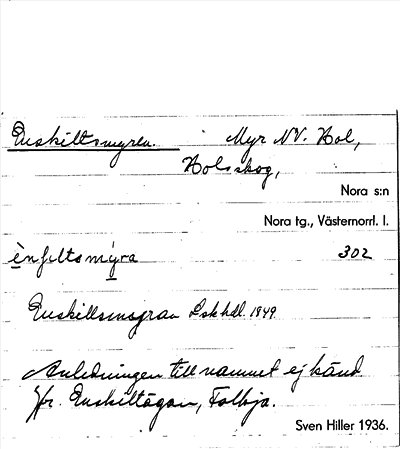 Enskiltsmyren. Myr NV. Hol,
Holsskog,
Nora s:n
Nora tg., Västernorrl. l.
ènʃiltsmýra 302
Enskillsmyran Lskhdl. 1849
Anledningen till namnet ej känd
Jfr. Enskiltägan, Folkja.
Sven Hiller 1936.